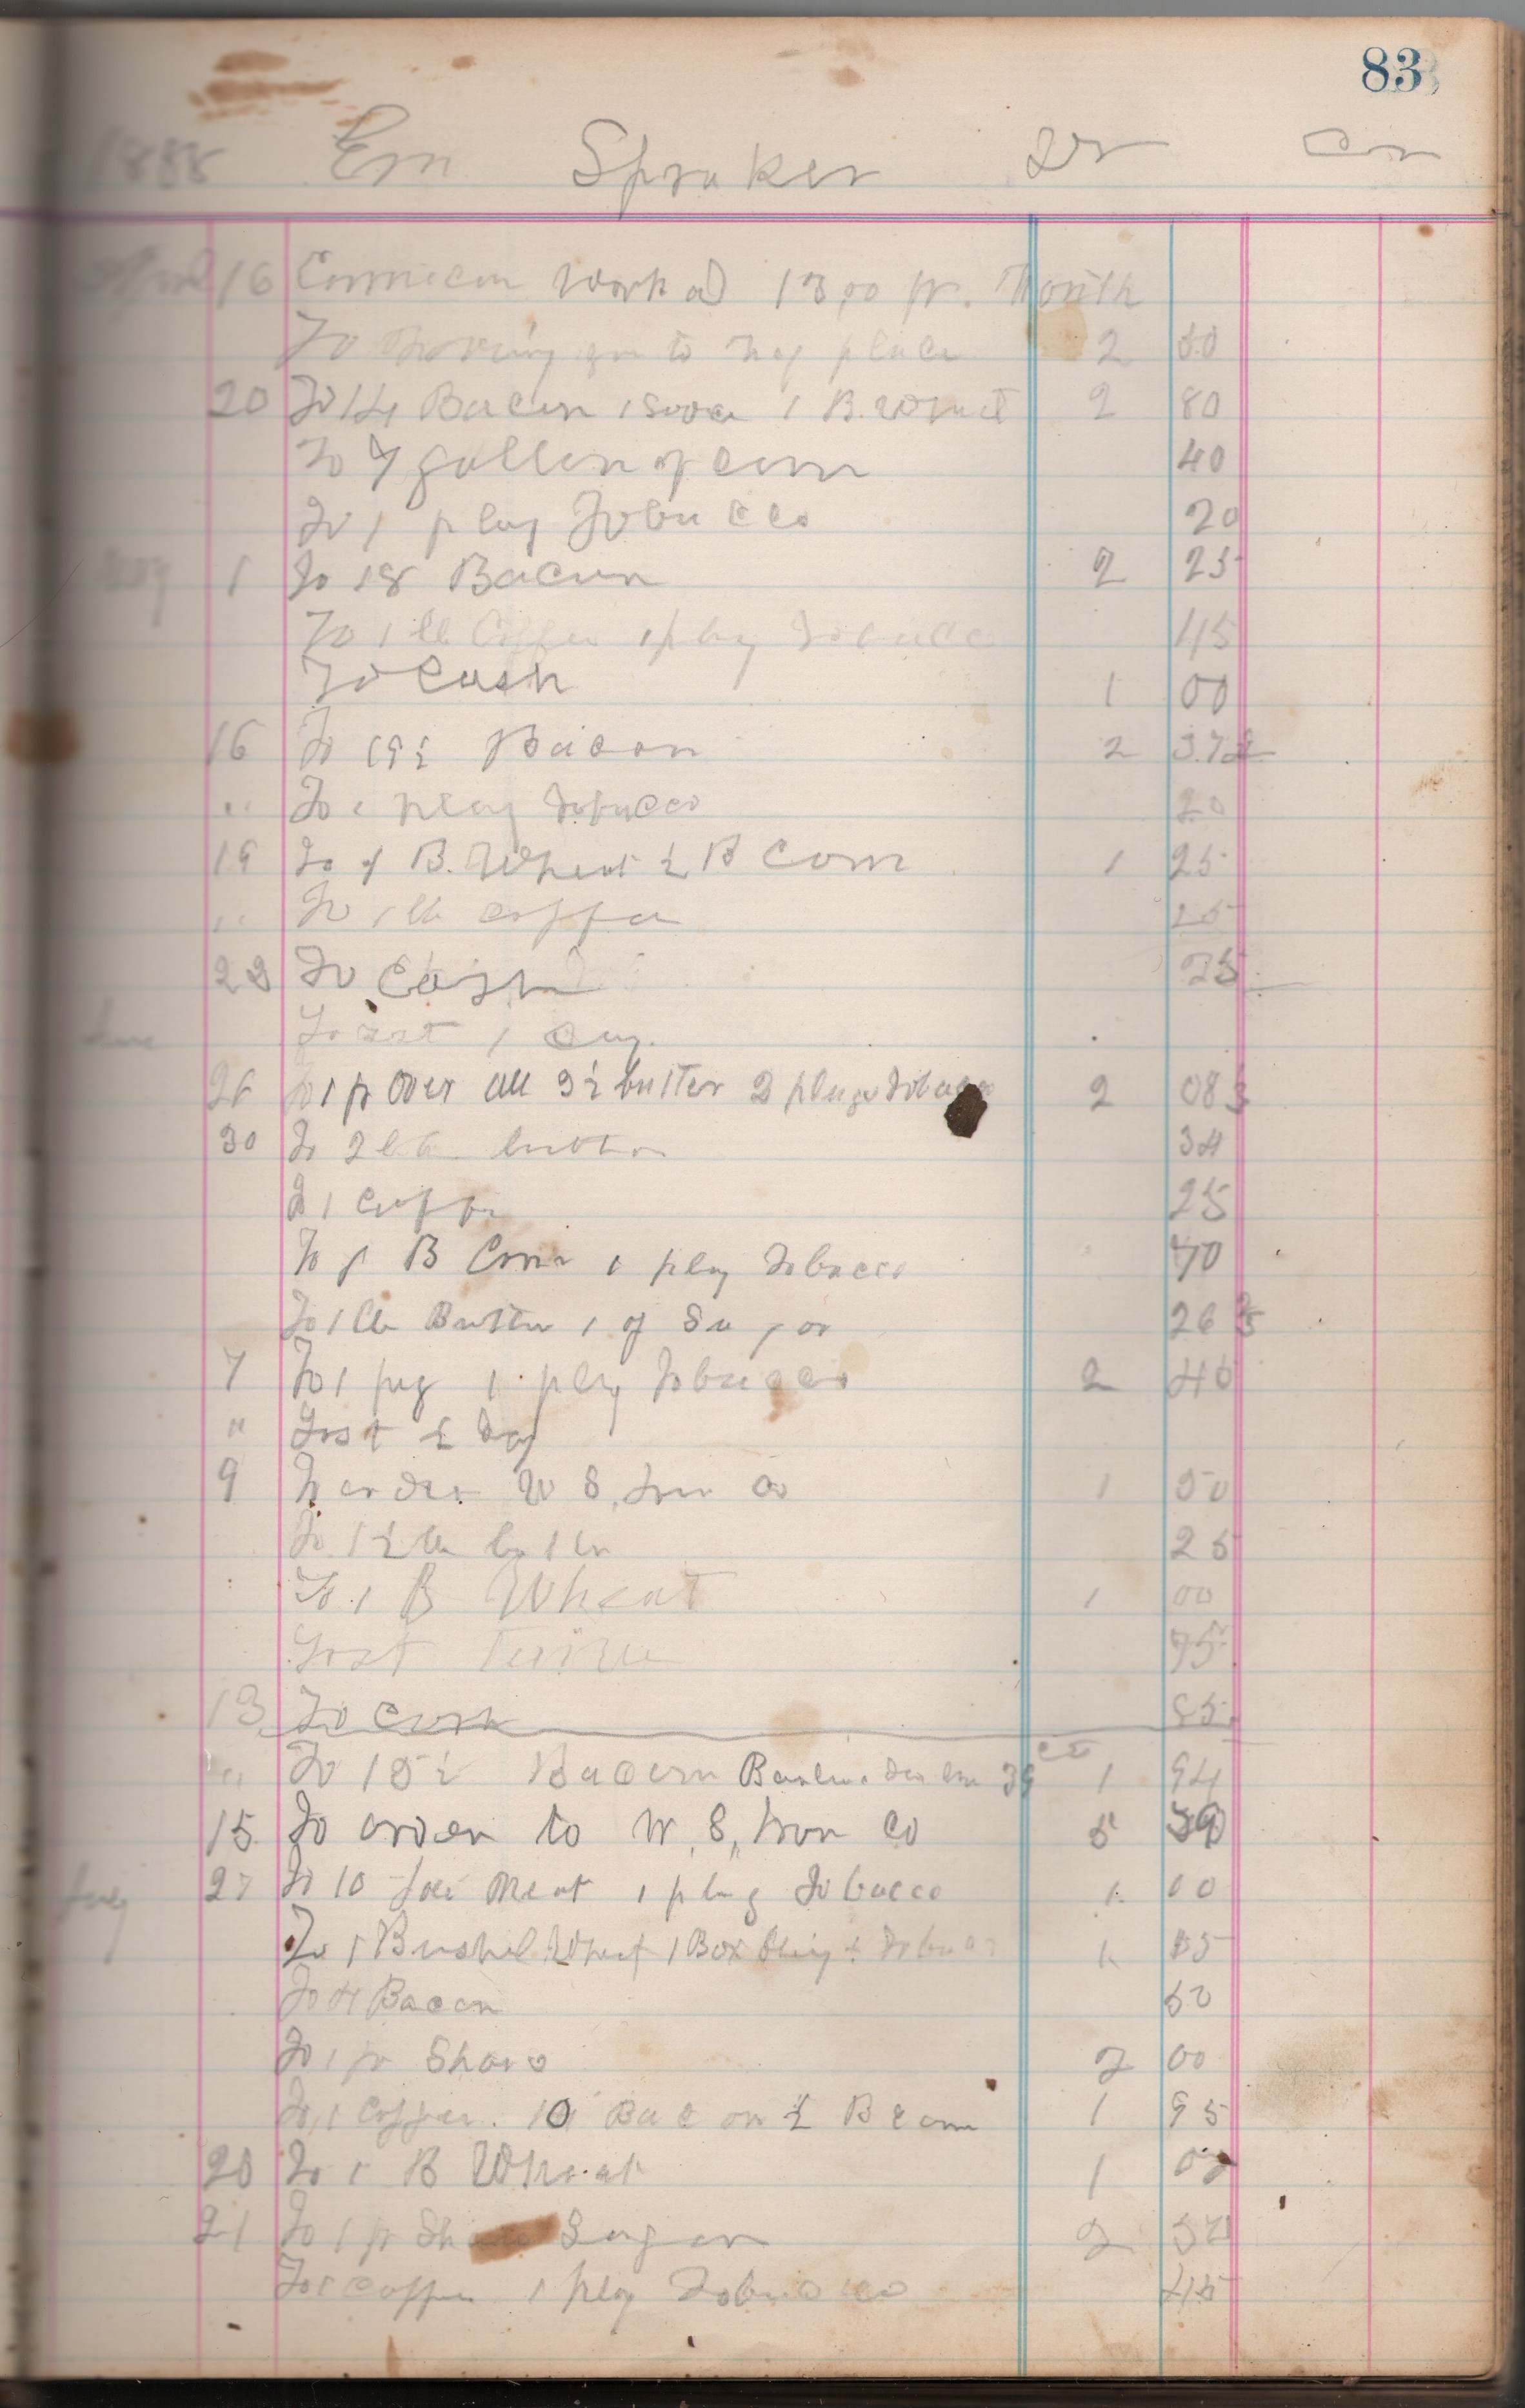 83
1888 Em Spraker Dr Cr
April 16 Commicen Work at 13,00 pr. Month
To Moving you to my place 2 50
20 To 14 Bacon 1 Soda 1 B. Wheat 2 80
To gallon of corn 40
To 1 plug Tobacco 20
May 1 To 18 Bacon 2 25
To 1 lb Coffee 1 plug Tobacco 45
To Cash 1 00
16 To 19½ Bacon 2
" To 1 plug Tobacco 20
19 To 1 B. Wheat ½ B Corn 1 25
" To 1 lb coffee 25
23 To Cash 25
June Lost 1 Day.
26 To 1 p Over all 3½ butter 2 plugs Tobacco 2 08
30 To 2 lb butter 34
To 1 Coffe 25
To 1 B Corn 1 plug Tobacco 70
To 1 lb Butter 1 of Sugar 26
7 To 1 1 plug Tobacco 2 45
" Lost ½ Day
9 To order W S, Iron Co 1 50
To 1½ lb butter 25
To 1 B Wheat 1 00
Lost Time 75
13 To Cash
" To 15½ Bacon 1 94
15 To order to W, S, Iron Co 5
July 27 To 10 Meat 1 plug Tobacco 1 00
To 1 Bushel Wheat 1 Box Tobacco 1
To 4 Bacon 50
To 1 pr Shoes 2 00
To 1 Coffee. 10 Bacon ½ B corn 1 95
20 To 1 B Wheat 1 00
21 To 1 pr Sugar 2
To 1 Coffee 1 plug Tobacco 45